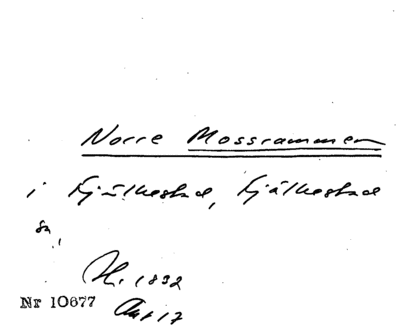 Norre Mossrammen
i Fjälkestad, Fjälkestad
sn,
H. 1892
Nr 10677
Akt 17